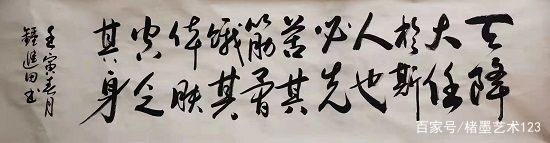 天降
大任
於斯
人也
必先
苦其
筋骨
餓其
体肤
空乏
其身
壬寅春月
鍾進田书
百家号/楮墨艺术123